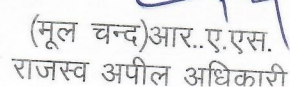 (मूल चन्द)आर..ए.एस.
राजस्व अपील अधिकारी